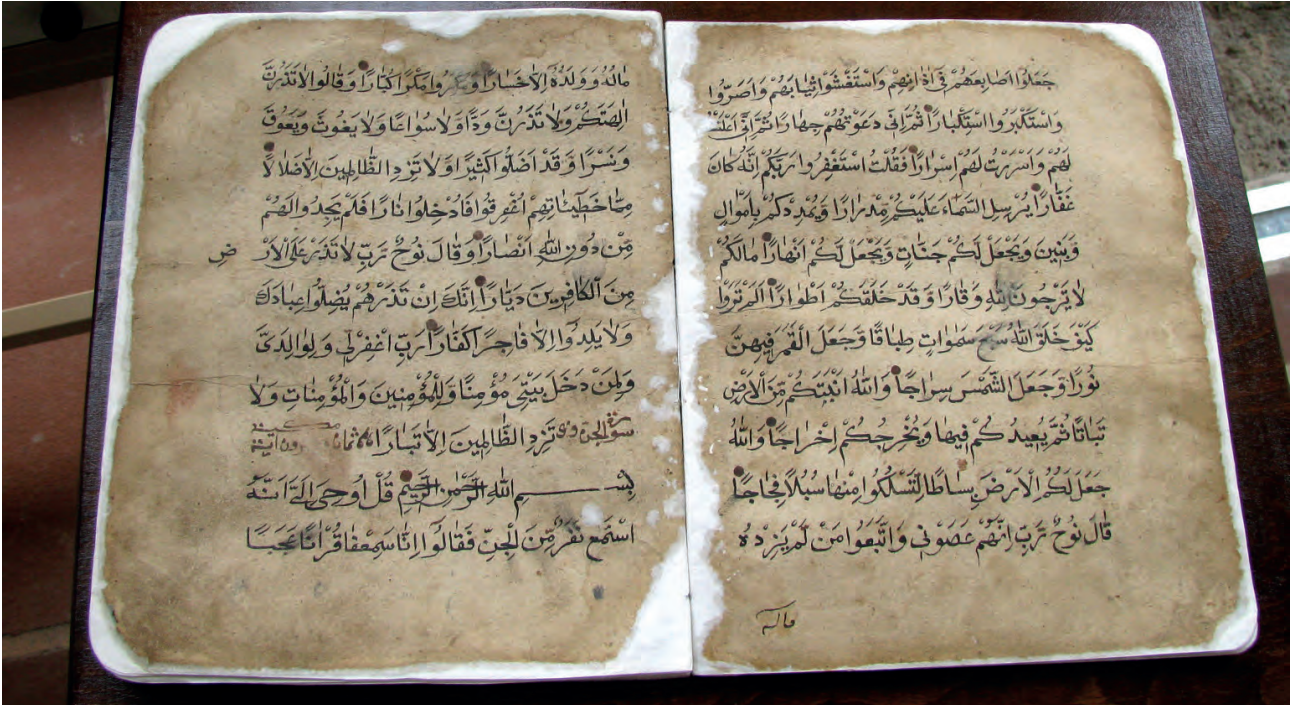 جَعَلُوا اَصَابِعَهُمْ فٓى اٰذَانِهِمْ وَاسْتَغْشَوْا ثِيَابَهُمْ وَاَصَرُّوا
وَاسْتَكْبَرُوا اسْتِكْبَارًا ثُمَّ اِنّٖى دَعَوْتُهُمْ جِهَارًا ثُمَّ اِنّٖى اَعْلَنْتُ
لَهُمْ وَاَسْرَرْتُ لَهُمْ اِسْرَارًا فَقُلْتُ اسْتَغْفِرُوا رَبَّكُمْ اِنَّهُ كَانَ
غَفَّارًا يُرْسِلِ السَّمَاءَ عَلَيْكُمْ مِدْرَارًا وَيُمْدِدْكُمْ بِاَمْوَالٍ
وَبَنٖينَ وَيَجْعَلْ لَكُمْ جَنَّاتٍ وَيَجْعَلْ لَكُمْ اَنْهَارًا مَالَكُمْ
لَا تَرْجُونَ لِلّٰهِ وَقَارًا وَقَدْ خَلَقَكُمْ اَطْوَارًا اَلَمْ تَرَوْا
كَيْفَ خَلَقَ اللّٰهُ سَبْعَ سَمٰوَاتٍ طِبَاقًا وَجَعَلَ الْقَمَرَ فٖيهِنَّ
نُورًا وَجَعَلَ الشَّمْسَ سِرَاجًا وَاللّٰهُ اَنْبَتَكُمْ مِنَ الْاَرْضِ
نَبَاتًا ثُمَّ يُعٖيدُكُمْ فٖيهَا وَيُخْرِجُكُمْ اِخْرَاجًا وَاللّٰهُ
جَعَلَ لَكُمُ الْاَرْضَ بِسَاطًا لِتَسْلُكُوا مِنْهَا سُبُلًا فِجَاجًا
قَالَ نُوحٌ رَبِّ اِنَّهُمْ عَصَوْنٖى وَاتَّبَعُوا مَنْ لَمْ يَزِدْهُ
ماله
مَالُهُ وَوَلَدُهُ اِلَّا خَسَارًا وَمَكَرُوا مَكْرًا كُبَّارًا وَقَالُوا لَا تَذَرُنَّ
اٰلِهَتَكُمْ وَلَا تَذَرُنَّ وَدًّا وَلَا سُوَاعًا وَلَا يَغُوثَ وَيَعُوقَ
وَنَسْرًا وَقَدْ اَضَلُّوا كَثٖيرًا وَلَا تَزِدِ الظَّالِمٖينَ اِلَّا ضَلَالًا
مِمَّا خَطٖٓيئَاتِهِمْ اُغْرِقُوا فَاُدْخِلُوا نَارًا فَلَمْ يَجِدُوا لَهُمْ
مِنْ دُونِ اللّٰهِ اَنْصَارًا وَقَالَ نُوحٌ رَبِّ لَا تَذَرْ عَلَى الْاَرْ ضِ
مِنَ الْكَافِرٖينَ دَيَّارًا اِنَّكَ اِنْ تَذَرْهُمْ يُضِلُّوا عِبَادَكَ
وَلَا يَلِدُوا اِلَّا فَاجِرًا كَفَّارًا رَبِّ اغْفِرْلٖى وَلِوَالِدَىَّ
وَلِمَنْ دَخَلَ بَيْتِىَ مُؤْمِنًا وَلِلْمُؤْمِنٖينَ وَالْمُؤْمِنَاتِ وَلَا
سورة الجن تَزِدِ الظَّالِمٖينَ اِلَّا تَبَارًا مكية
بِسْمِ اللّٰهِ الرَّحْمٰنِ الرَّحٖيمِ قُلْ اُوحِىَ اِلَىَّ اَنَّهُ
اسْتَمَعَ نَفَرٌ مِنَ الْجِنِّ فَقَالُوا اِنَّا سَمِعْنَا قُرْاٰنًا عَجَبًا